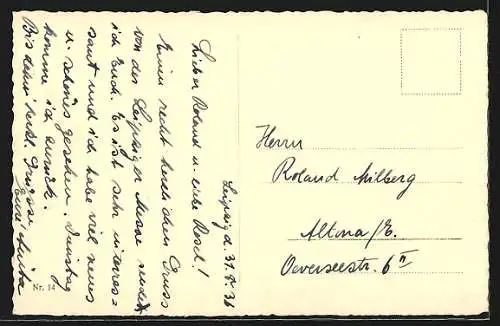 Leipzig d. 31. V. 36
Lieber Roland u. liebe Rosel!
Einen recht herzlichen Gruss
von der Leipziger Messe sendet
ich Euch. Es ist sehr interes=
sant und ich habe viel neues
u. schönes gesehen. Dienstag
komme ich zurück.
Bis dahin herzl. Grüsse
Eure Anita
Herrn
Roland Milberg
Altona/E.
Oeverseestr. 6 II
Nr. 14